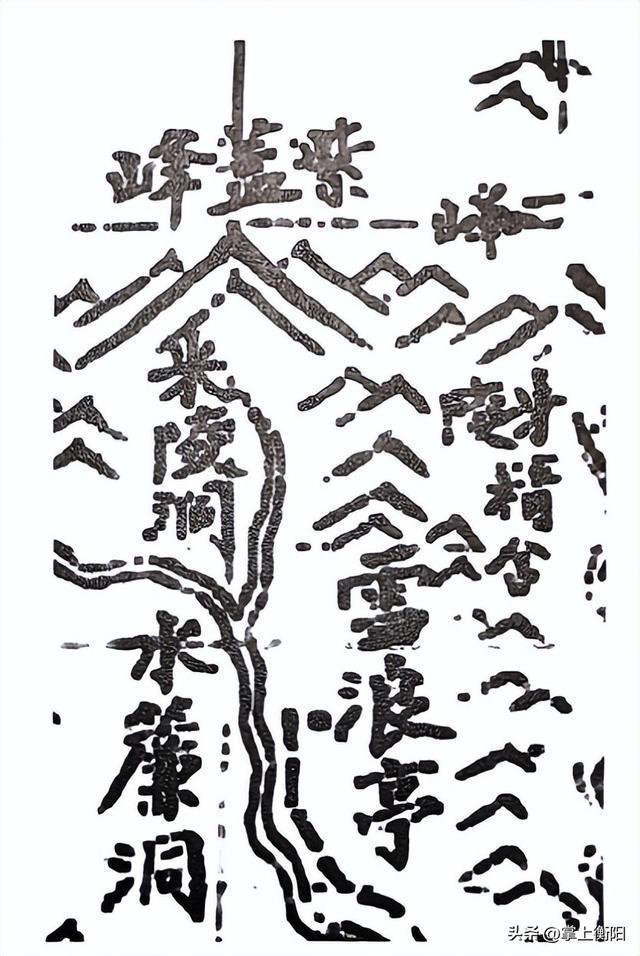 紫蓋峰
峰
朱陵洞
雪浪亭
水簾洞
头条 @掌上衡阳